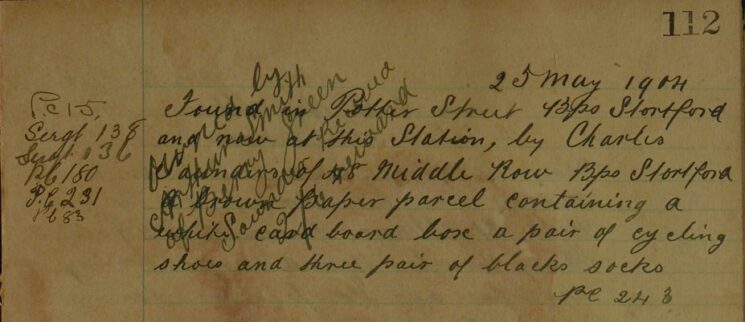 112
25 May 1904
Found in Potter Street Bps Stortford
and now at this Station, by Charles
Saunders of 48 Middle Row Bps Stortford
a brown paper parcel containing a
white card board boxe a pair of cycling
shoes and three pair of blacks socks
PC 243
Pc 15,
Sergt 138
Sergt 136
PC 180
P.C 231
PC 83
by
Smith
of Green
Saunders